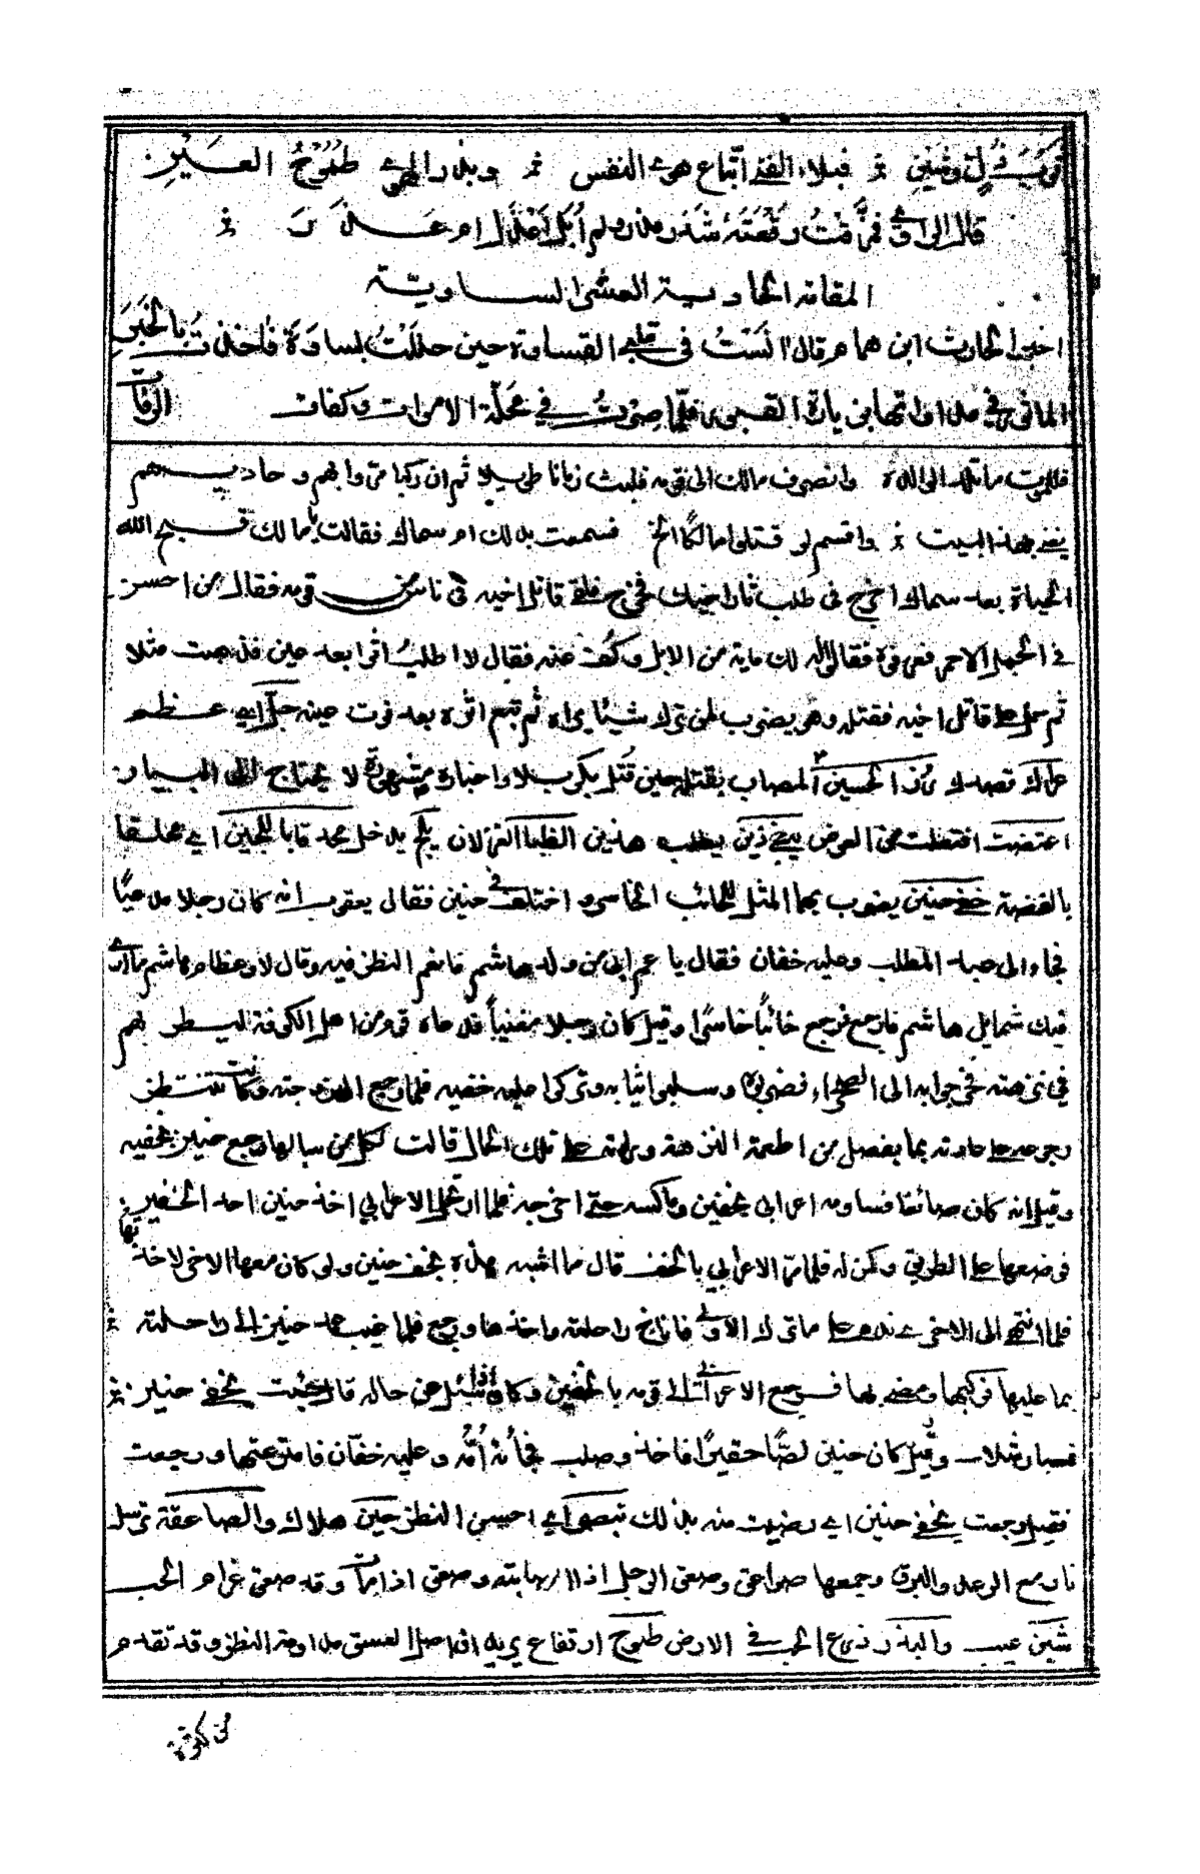 فبلاء الفتى اتّباع هوى النفس وبذر الهوى طُمُوحُ العَيْنِ
قال الراوى فمزّقتُ رقعتَه شَذَر مذر ولم أُبَل أعَذَل ام عَذَرَ
المقامة الحادية العشر الساوية
اخبر الحارث ابن همام قال انَسْتُ فى قلبى القساوة حين حللتُ بساوَةَ فاخذتُ بالخَبَرِ
الماثور فى مداواتها بزيارة القبور فلما صرتُ فى مَحَلّة الاموات وكفات الرفات
وانصرف مالك الى قومه فلبث زمانا طويلا ثم ان ركبا مروا بهم وحاديهم
يغنى بهذا البيت واقسم لو قتلوا مالكًا الخ فسمعت بذلك ام سماك فقالت يا مالك قبح الله
الحياة بعد سماك اخرج فى طلب ثار اخيك فخرج فلقى قاتل اخيه فى ناس من قومه فقال من احسن
فى الجمل الاحمر فعرفوه فقالوا له لك ماية من الابل وكف عنه فقال لا اطلب اثرا بعد عين فذهبت مثلا
ثم حمل على قاتل اخيه فقتله وهو يضرب لمن ترك شيئا يراه ثم تبع اثره بعد فوت عينه جلّ اى عظم
عراك قصدك رُزْء الحسين المصاب بقتله حين قُتل بكربلا واخباره مشهورة لا يحتاج الى البيان
اعتضت افتعلت من العوض يبغى ذين يطلب هذين الظبا الغزلان يلج يدخل
بالفضة خفى حنين يضرب بهما المثل للخائب الخاسر واختلف فى حنين فقال يعقوب انه كان رجلا مدعيًا
فجاء الى عبد المطلب وعليه خفان فقال يا عم انى من ولد هاشم فانعم النظر فيه وقال لا وعظام هاشم ما ارى
فيك شمايل هاشم فارجع فرجع خائبًا خاسرًا وقيل كان رجلا مغنياً فدعاه قوم من اهل الكوفة ليطربهم
فى نزهته فخرجوا به الى الصحراء فضربوه وسلبوا ثيابه وتركوا عليه خفيه فلما رجع الى زوجته وكانت تنتظر
رجوعه على عادته بما يفضل من اطعمة النزهة وراته على تلك الحال قالت لكل من سالها رجع حنين بخفيه
وقيل انه كان صانعا فساومه اعرابى بخفين وماكسه حتى اخرجه فلما ارتحل الاعرابي اخذ حنين احد الخفين
فوضعها على الطريق وكمن له فلما مرّ الاعرابي بالخف قال ما اشبه هذه بخف حنين ولو كان معها الاخرى لاخذتها
فلما انتهى الى الاخرى ندم على ما ترك الاولى فاناخ راحلته واخذها ورجع فلما غيب عمد حنين الى راحلته
بما عليها فركبها ومضى بها فرجع الاعرابى الى قومه بالخفين وكان اذا سئل عن حاله قال جئت بخفى حنين
فسار مثلا وقيل كان حنين لصًّا حقيرًا فاخذ وصلب فجاءته اُمُّه وعليه خفّان فانتزعتهما ورجعت
فقيل رجعت بخفى حنين اى رضيت منه بذلك تبصر اى احسن النظر حين هلاك والصاعقة ترسل
نار مع الرعد والبرق وجمعها صواعق وصعق الرجل اذا اصابته وصعق اذا مات وقد صعق غرام الحب
شين عيب والبذر زرع الحب فى الارض طموح ارتفاع يريد ان اصل العشق مداومة النظر وقد تقدم